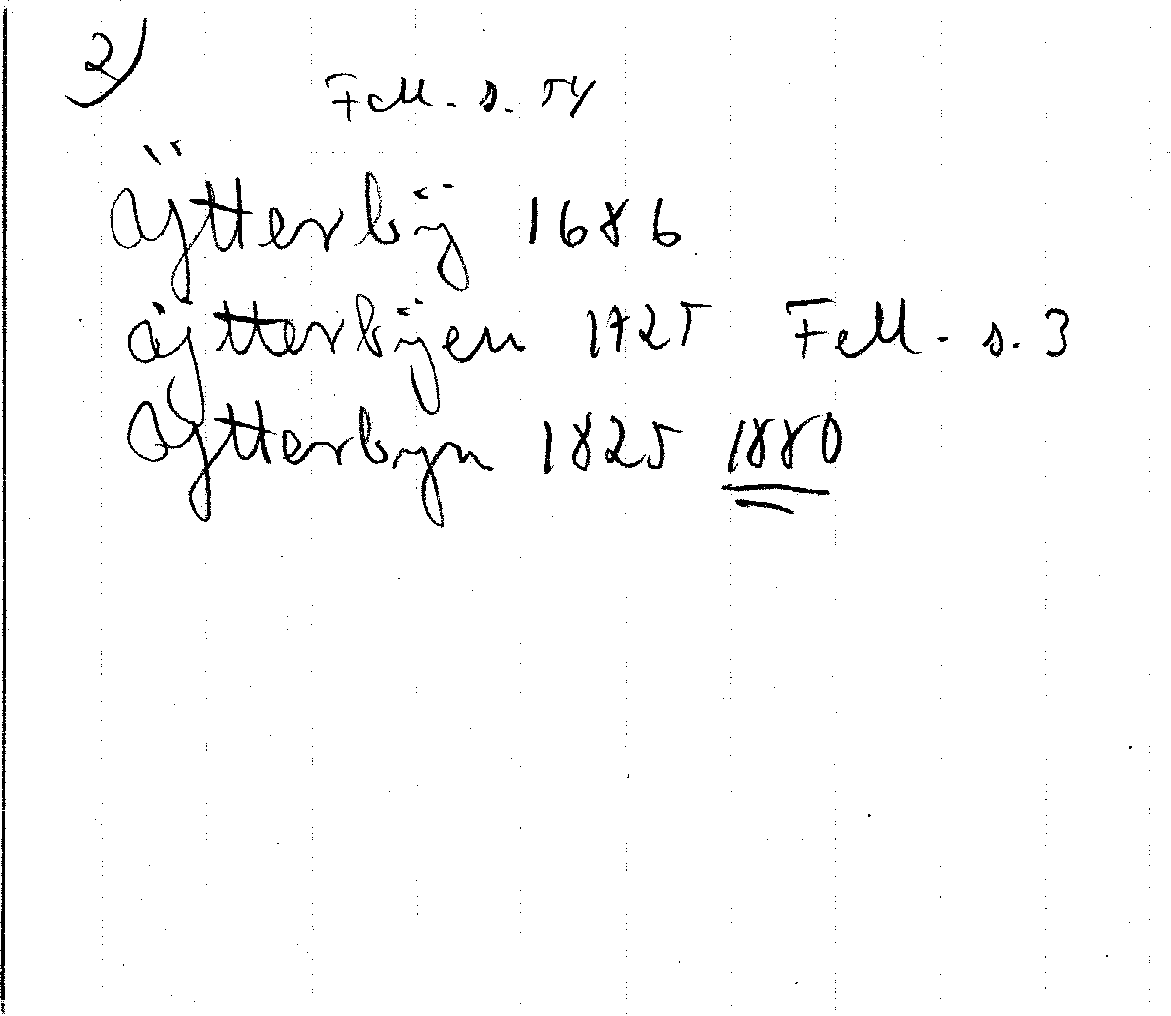 2)
Fell. s. 54
Äÿtterbÿ 1686
äÿtterbÿen 1725 Fell. s. 3
Aÿtterbyn 1825 1880